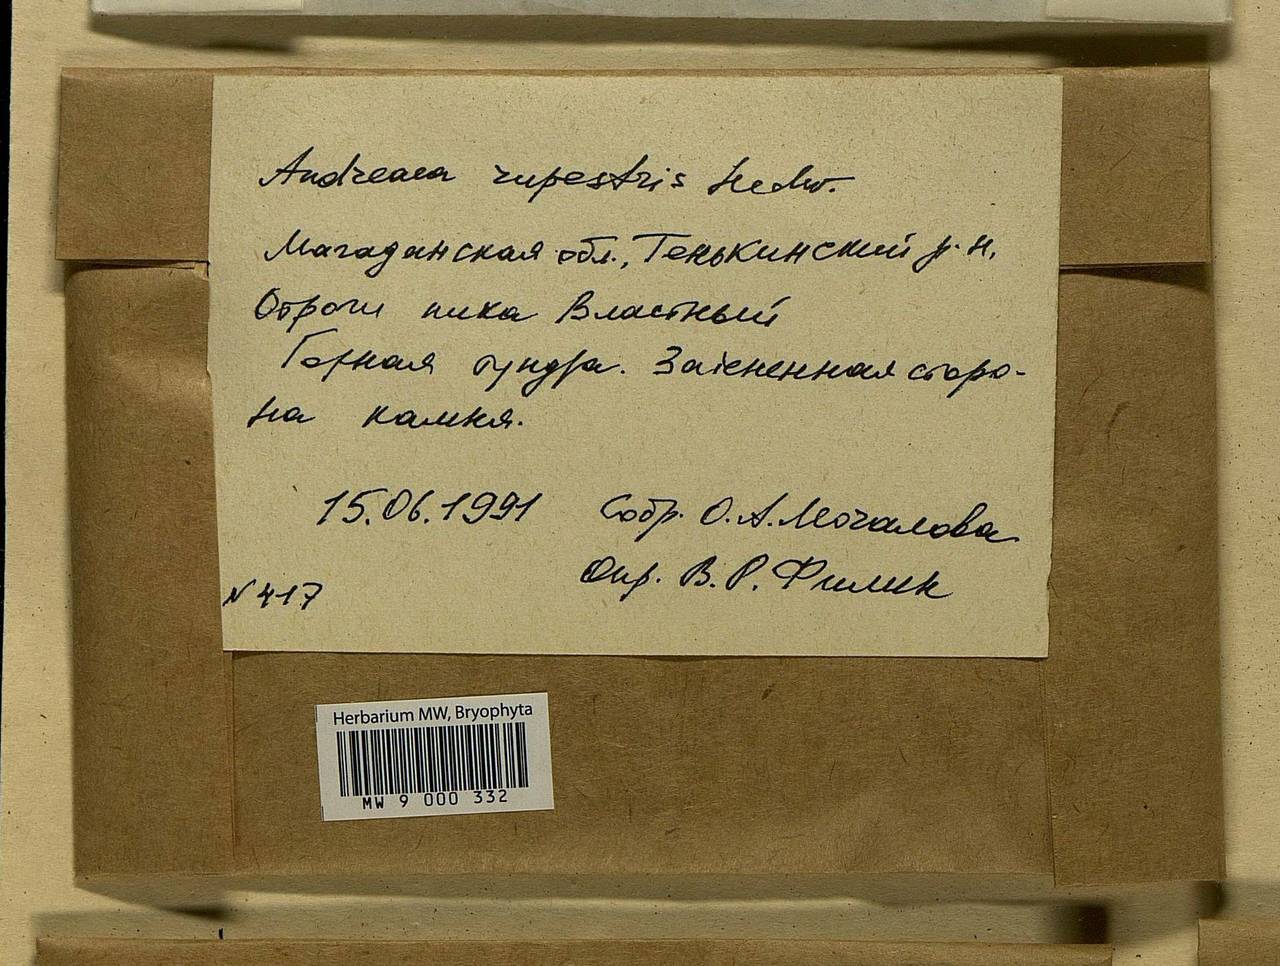 Andreaea rupestris Hedw.
Магаданская обл., Тенькинский р-н.
Отроги пика Властный
Горная тундра. Заснеженная сторо-
на камня.
15.06.1991 Собр. О.А. Мочалова
Опр. В.Р. Филин
N 417
Herbarium MW, Bryophyta
MW 9 000 332